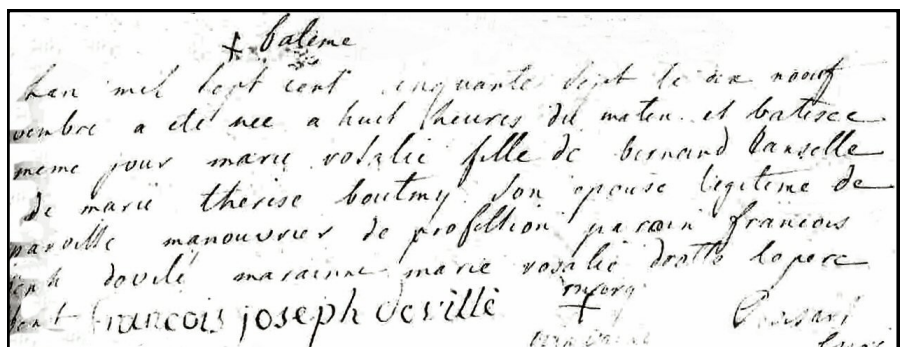 batême
Lan mil sept cent cinquante sept le dix noeuf
vembre a été née a huit heures du matin et batisée
meme jour marie rosalie fille de bernard Vanselle
de marie thérèse boutmy son epouse legitime de
manouvrier de profession paroin francois
deville maraine marie rosalie drotte lopere
sent francois joseph deville